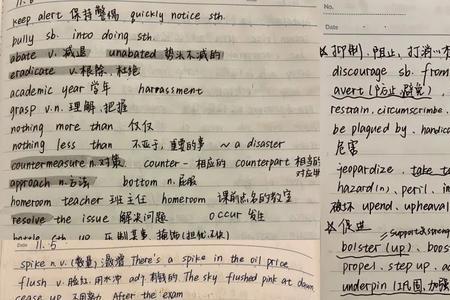 keep alert 保持警惕 quickly notice sth.
bully sb. into doing sth.
abate v. 减退 unabated 势头不减的
eradicate v. 根除, 杜绝
academic year 学年 harrassment
grasp v.n. 理解, 把握
nothing more than 仅仅
nothing less than 不亚于, 重要的事 ~ a disaster
countermeasure n. 对策 counter- 相应的 counterpart 相当的
approach n. 方法 bottom n. 屁股
homeroom teacher 班主任 homeroom 课前点名的教室
resolve the issue 解决问题 occur 发生
Date 11.5
spike n v. (数量) 激增 There's a spike in the oil price
flush v. 脸红, 用水冲 adj 有钱的. The sky flushed pink at dawn
cease up After the exam
No.
Date
抑制. 阻止, 打消
discourage sb. from
avert (防止, 避免)
restrain. circumscribe.
be plagued by. handica
危害
jeopardize. take to
hazard(n). peril. im
破坏 upend. upheaval
促进 support & streng
bolster (up). boos
propel. step up. a
underpin (巩固, 加强